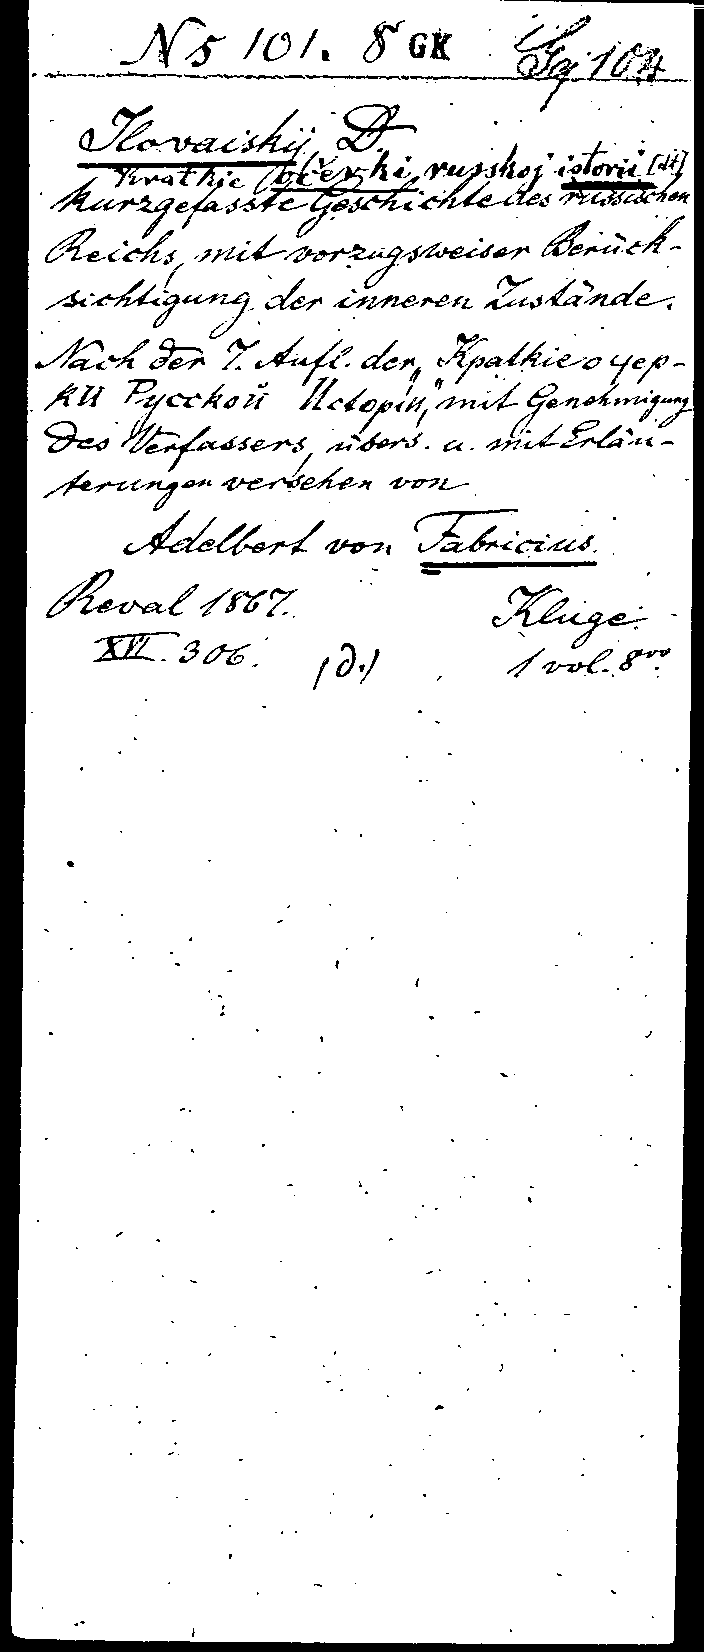 N 5 101. 8 GK Gg 104
Ilovaiskij, D.
Kratkie očerki russkoj istorii [dt]
Kurzgefasste Geschichte des russischen
Reichs, mit vorzugsweiser Berück-
sichtigung der inneren Zustände.
Nach der 7. Aufl. der „Краткіе очер-
ки Русской Исторіи“, mit Genehmigung
des Verfassers, übers. u. mit Erläu-
terungen versehen von
Adelbert von Fabricius.
Reval 1867. Kluge.
XVI. 306. (d.) 1 vol. 8vo.